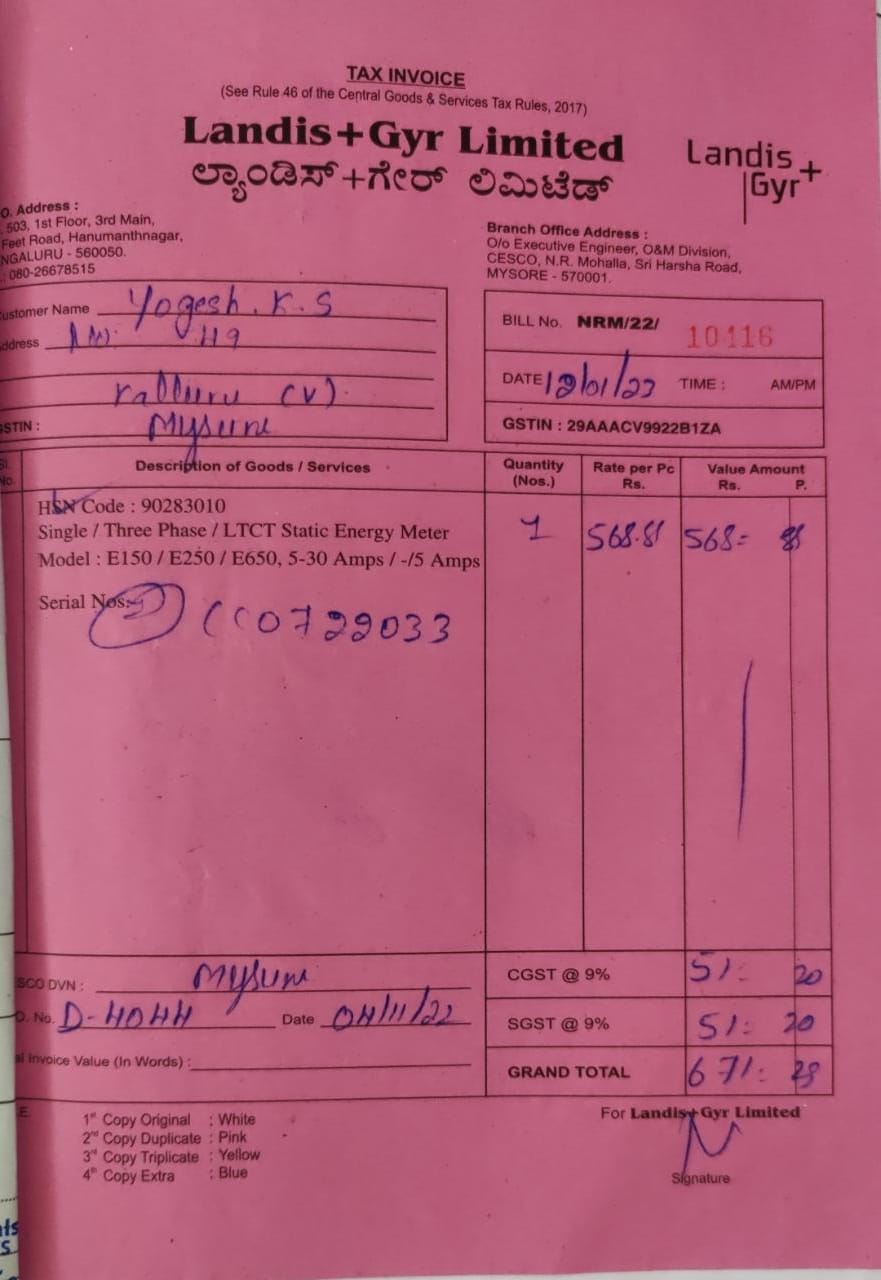 TAX INVOICE
(See Rule 46 of the Central Goods & Services Tax Rules, 2017)
Landis+Gyr Limited
ಲ್ಯಾಂಡಿಸ್+ಗೇರ್ ಲಿಮಿಟೆಡ್
Landis+
Gyr
O. Address :
503, 1st Floor, 3rd Main,
Feet Road, Hanumanthnagar,
NGALURU - 560050.
: 080-26678515
Branch Office Address :
O/o Executive Engineer, O&M Division,
CESCO, N.R. Mohalla, Sri Harsha Road,
MYSORE - 570001.
ustomer Name Yogesh. K. S
ddress
STIN :
BILL No. NRM/22/ 10116
DATE TIME : AM/PM
GSTIN : 29AAACV9922B1ZA
Sl. No. Description of Goods / Services Quantity (Nos.) Rate per Pc Rs. Value Amount Rs. P.
HSN Code : 90283010
Single / Three Phase / LTCT Static Energy Meter 1 568.81 568= 81
Model : E150 / E250 / E650, 5-30 Amps / -/5 Amps
Serial Nos: 0729033
SCO DVN : CGST @ 9% 51: 20
O. No. D-4044 Date 04/11/22 SGST @ 9% 51: 20
al Invoice Value (In Words) : GRAND TOTAL 671:
E.
1st Copy Original : White
2nd Copy Duplicate : Pink
3rd Copy Triplicate : Yellow
4th Copy Extra : Blue
For Landis+Gyr Limited
Signature